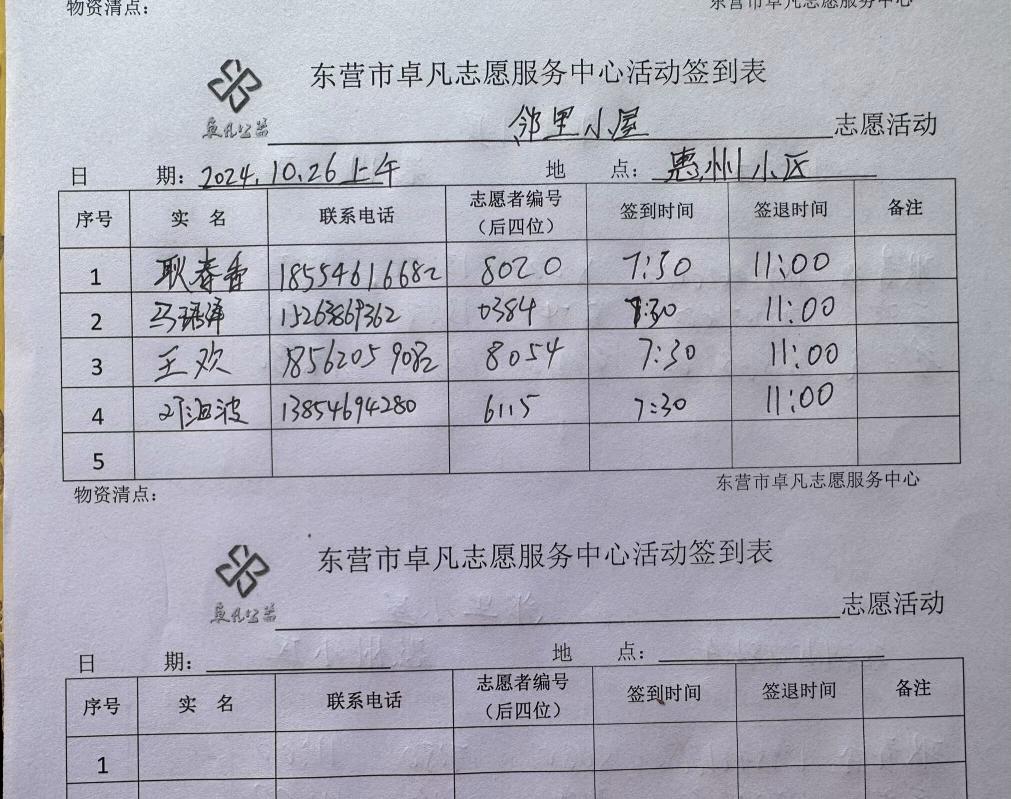 物资清点：
东营市卓凡志愿服务中心
东营市卓凡志愿服务中心活动签到表
卓凡公益
邻里小屋 志愿活动
日 期：2024.10.26上午 地 点：惠州小区
序号 实 名 联系电话 志愿者编号（后四位） 签到时间 签退时间 备注
1 耿春香 18554616682 8020 7:30 11:00
2 马 15263869362 0384 7:30 11:00
3 王欢 18562059082 8054 7:30 11:00
4 波 13854694280 6115 7:30 11:00
5
物资清点：
东营市卓凡志愿服务中心
东营市卓凡志愿服务中心活动签到表
卓凡公益
志愿活动
日 期： 地 点：
序号 实 名 联系电话 志愿者编号（后四位） 签到时间 签退时间 备注
1